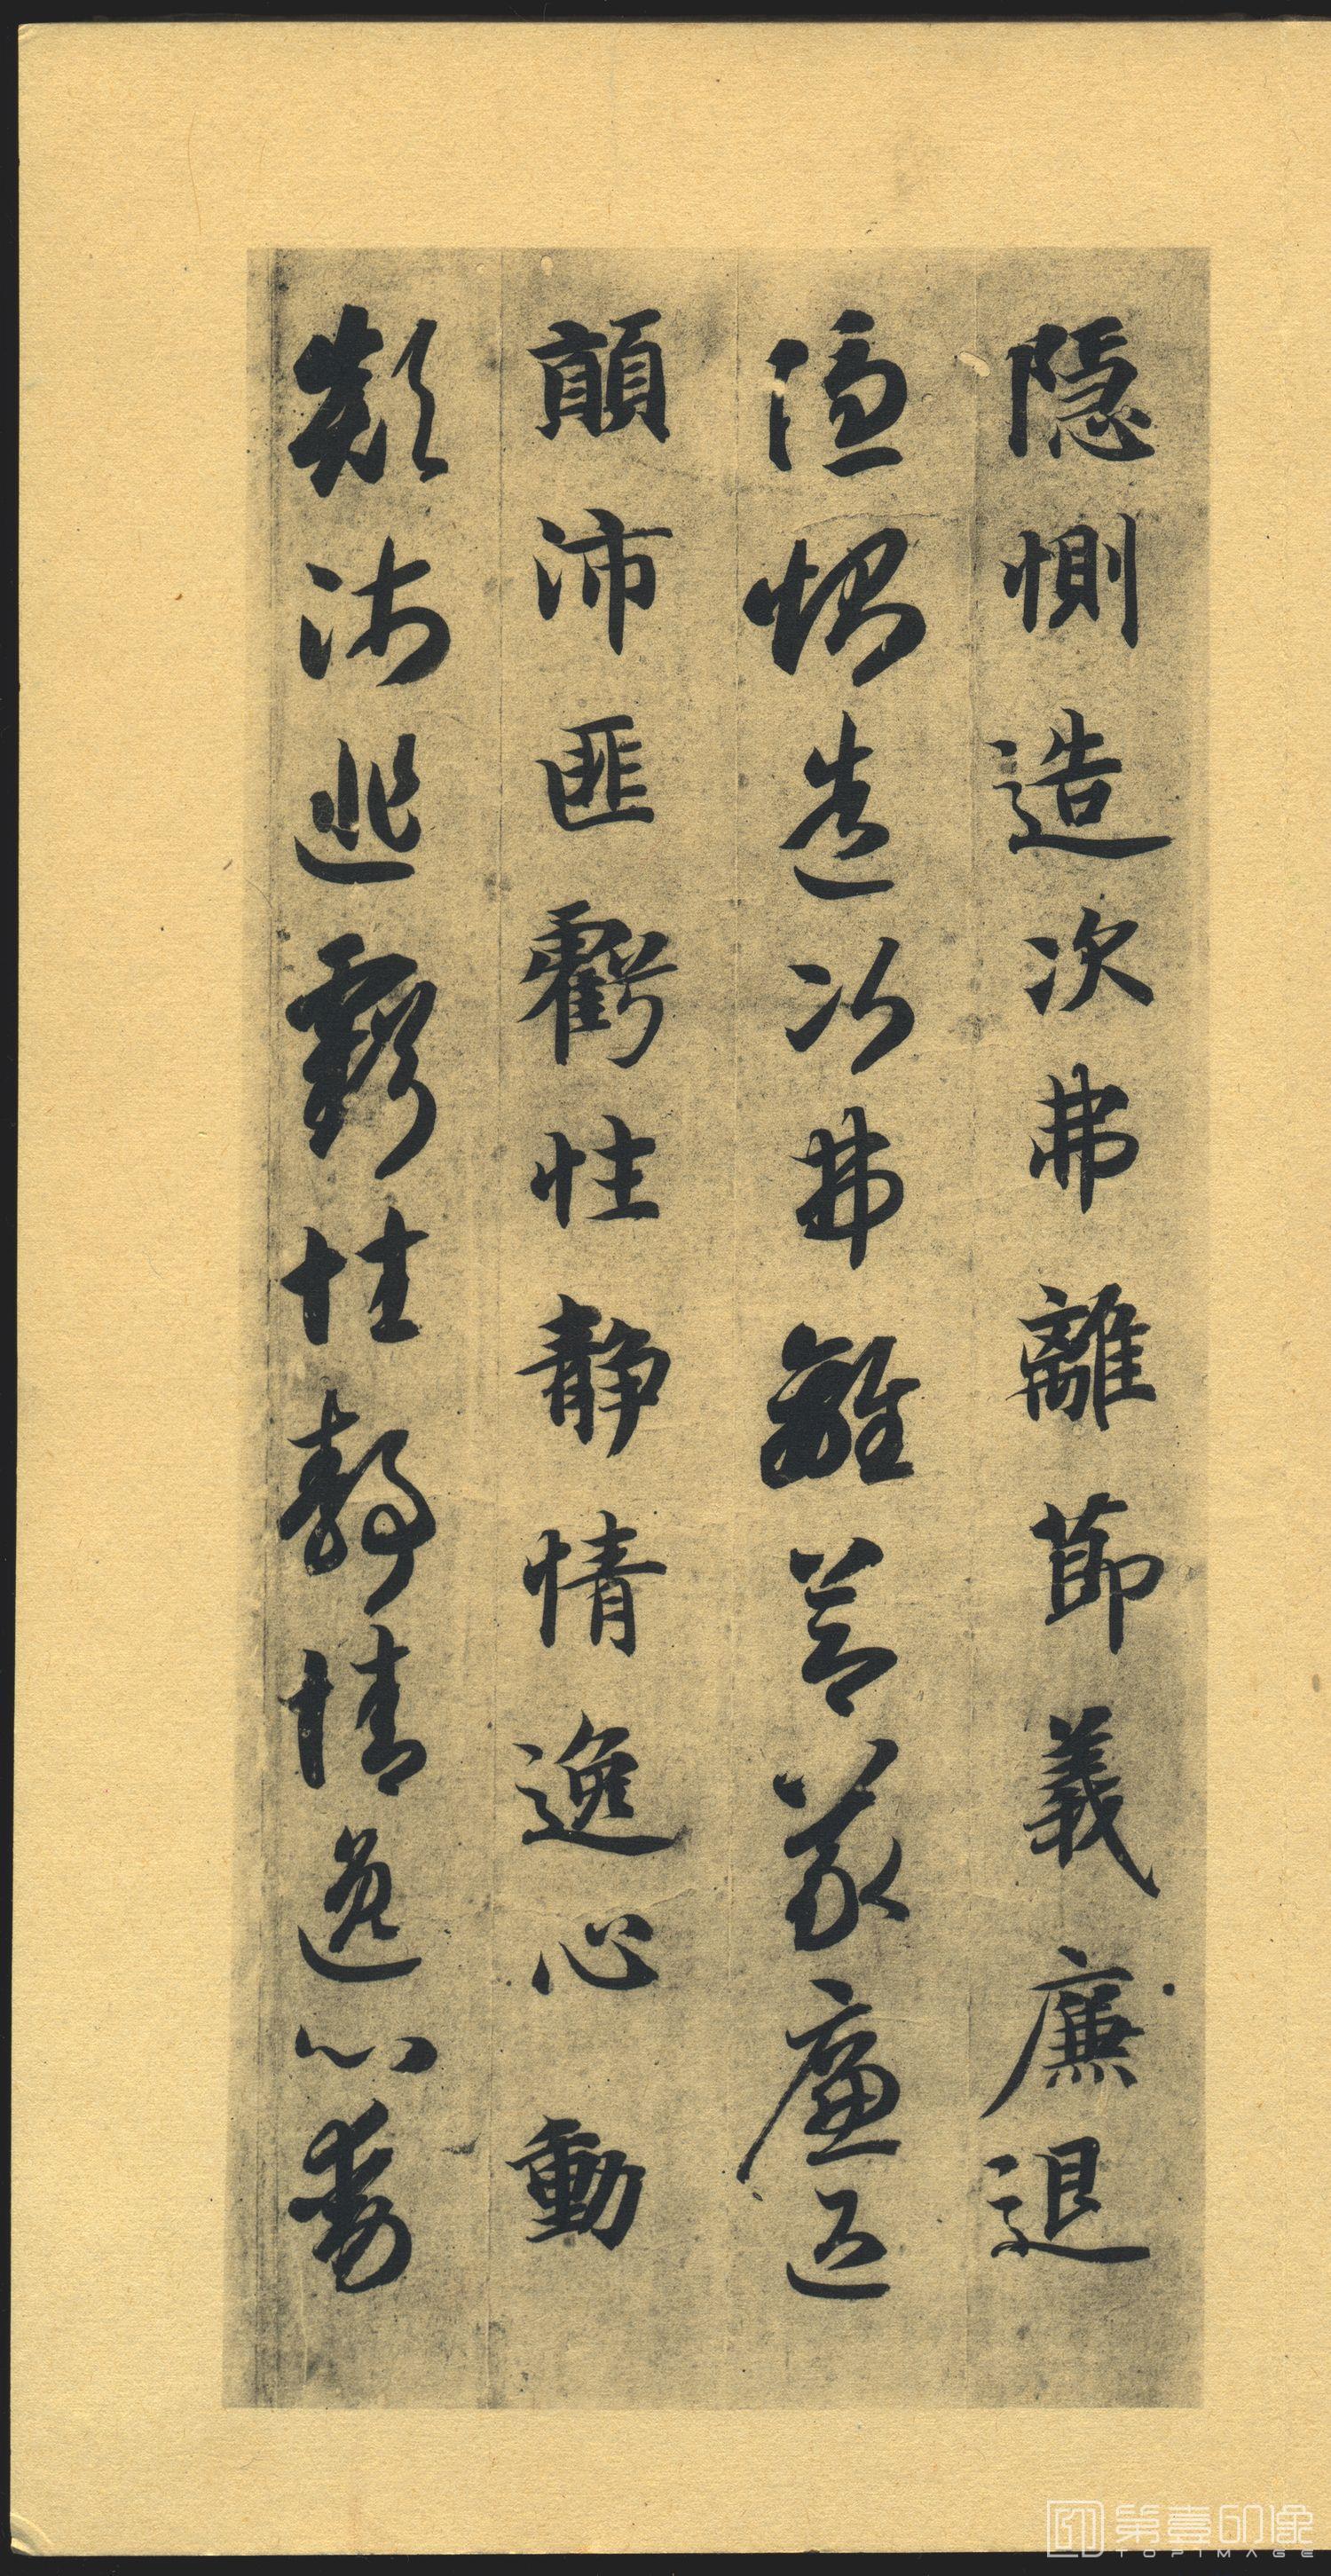 隱惻造次弗離節義廉退
隱惻造次弗離節義廉退
顛沛匪虧性静情逸心動
顛沛匪虧性静情逸心動
第壹印像
TOPIMAGE